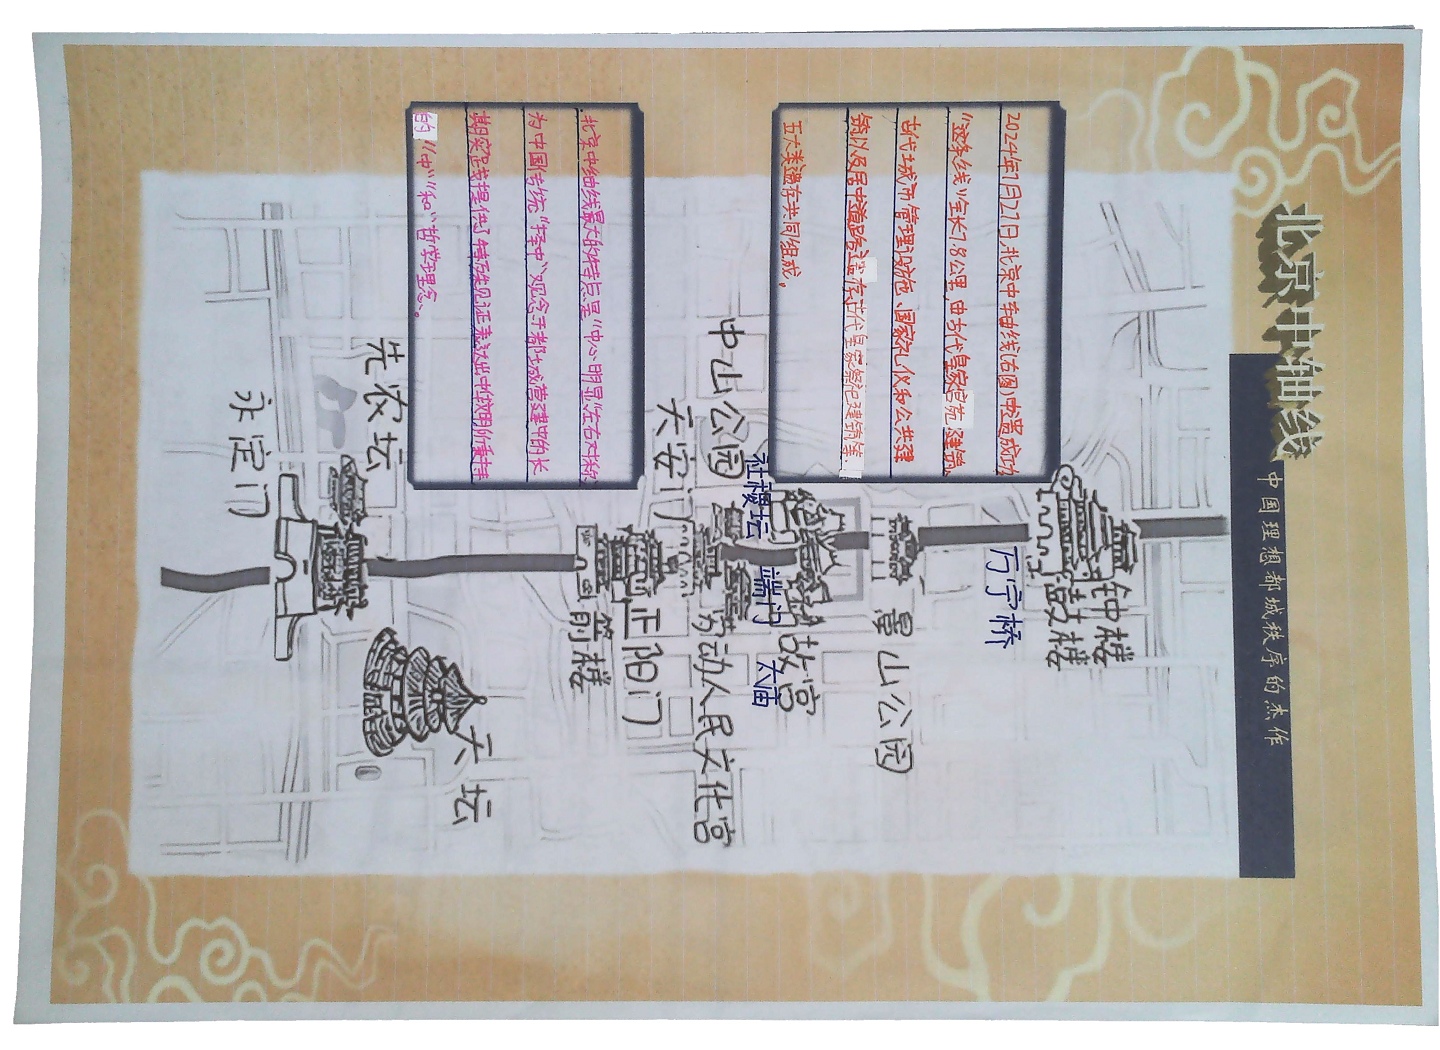 北京中轴线
中国理想都城秩序的杰作
2024年7月27日,北京中轴线(右图)申遗成功
"这条线"全长7.8公里,由古代皇家宫苑建筑
古代城市管理设施、国家礼仪和公共建
筑以及居中道路遗存古代皇家祭祀建筑等.
五大类遗存共同组成。
北京中轴线最大的特点是"中心明显左右对称
为中国传统"择中"观念于都城营建中的长
期实践提供了特殊见证表达出中华文明所秉持
的"中""和"哲学理念。
钟楼
鼓楼
万宁桥
景山公园
故宫
太庙
社稷坛
端门
中山公园
劳动人民文化宫
天安门
正阳门
箭楼
天坛
先农坛
永定门